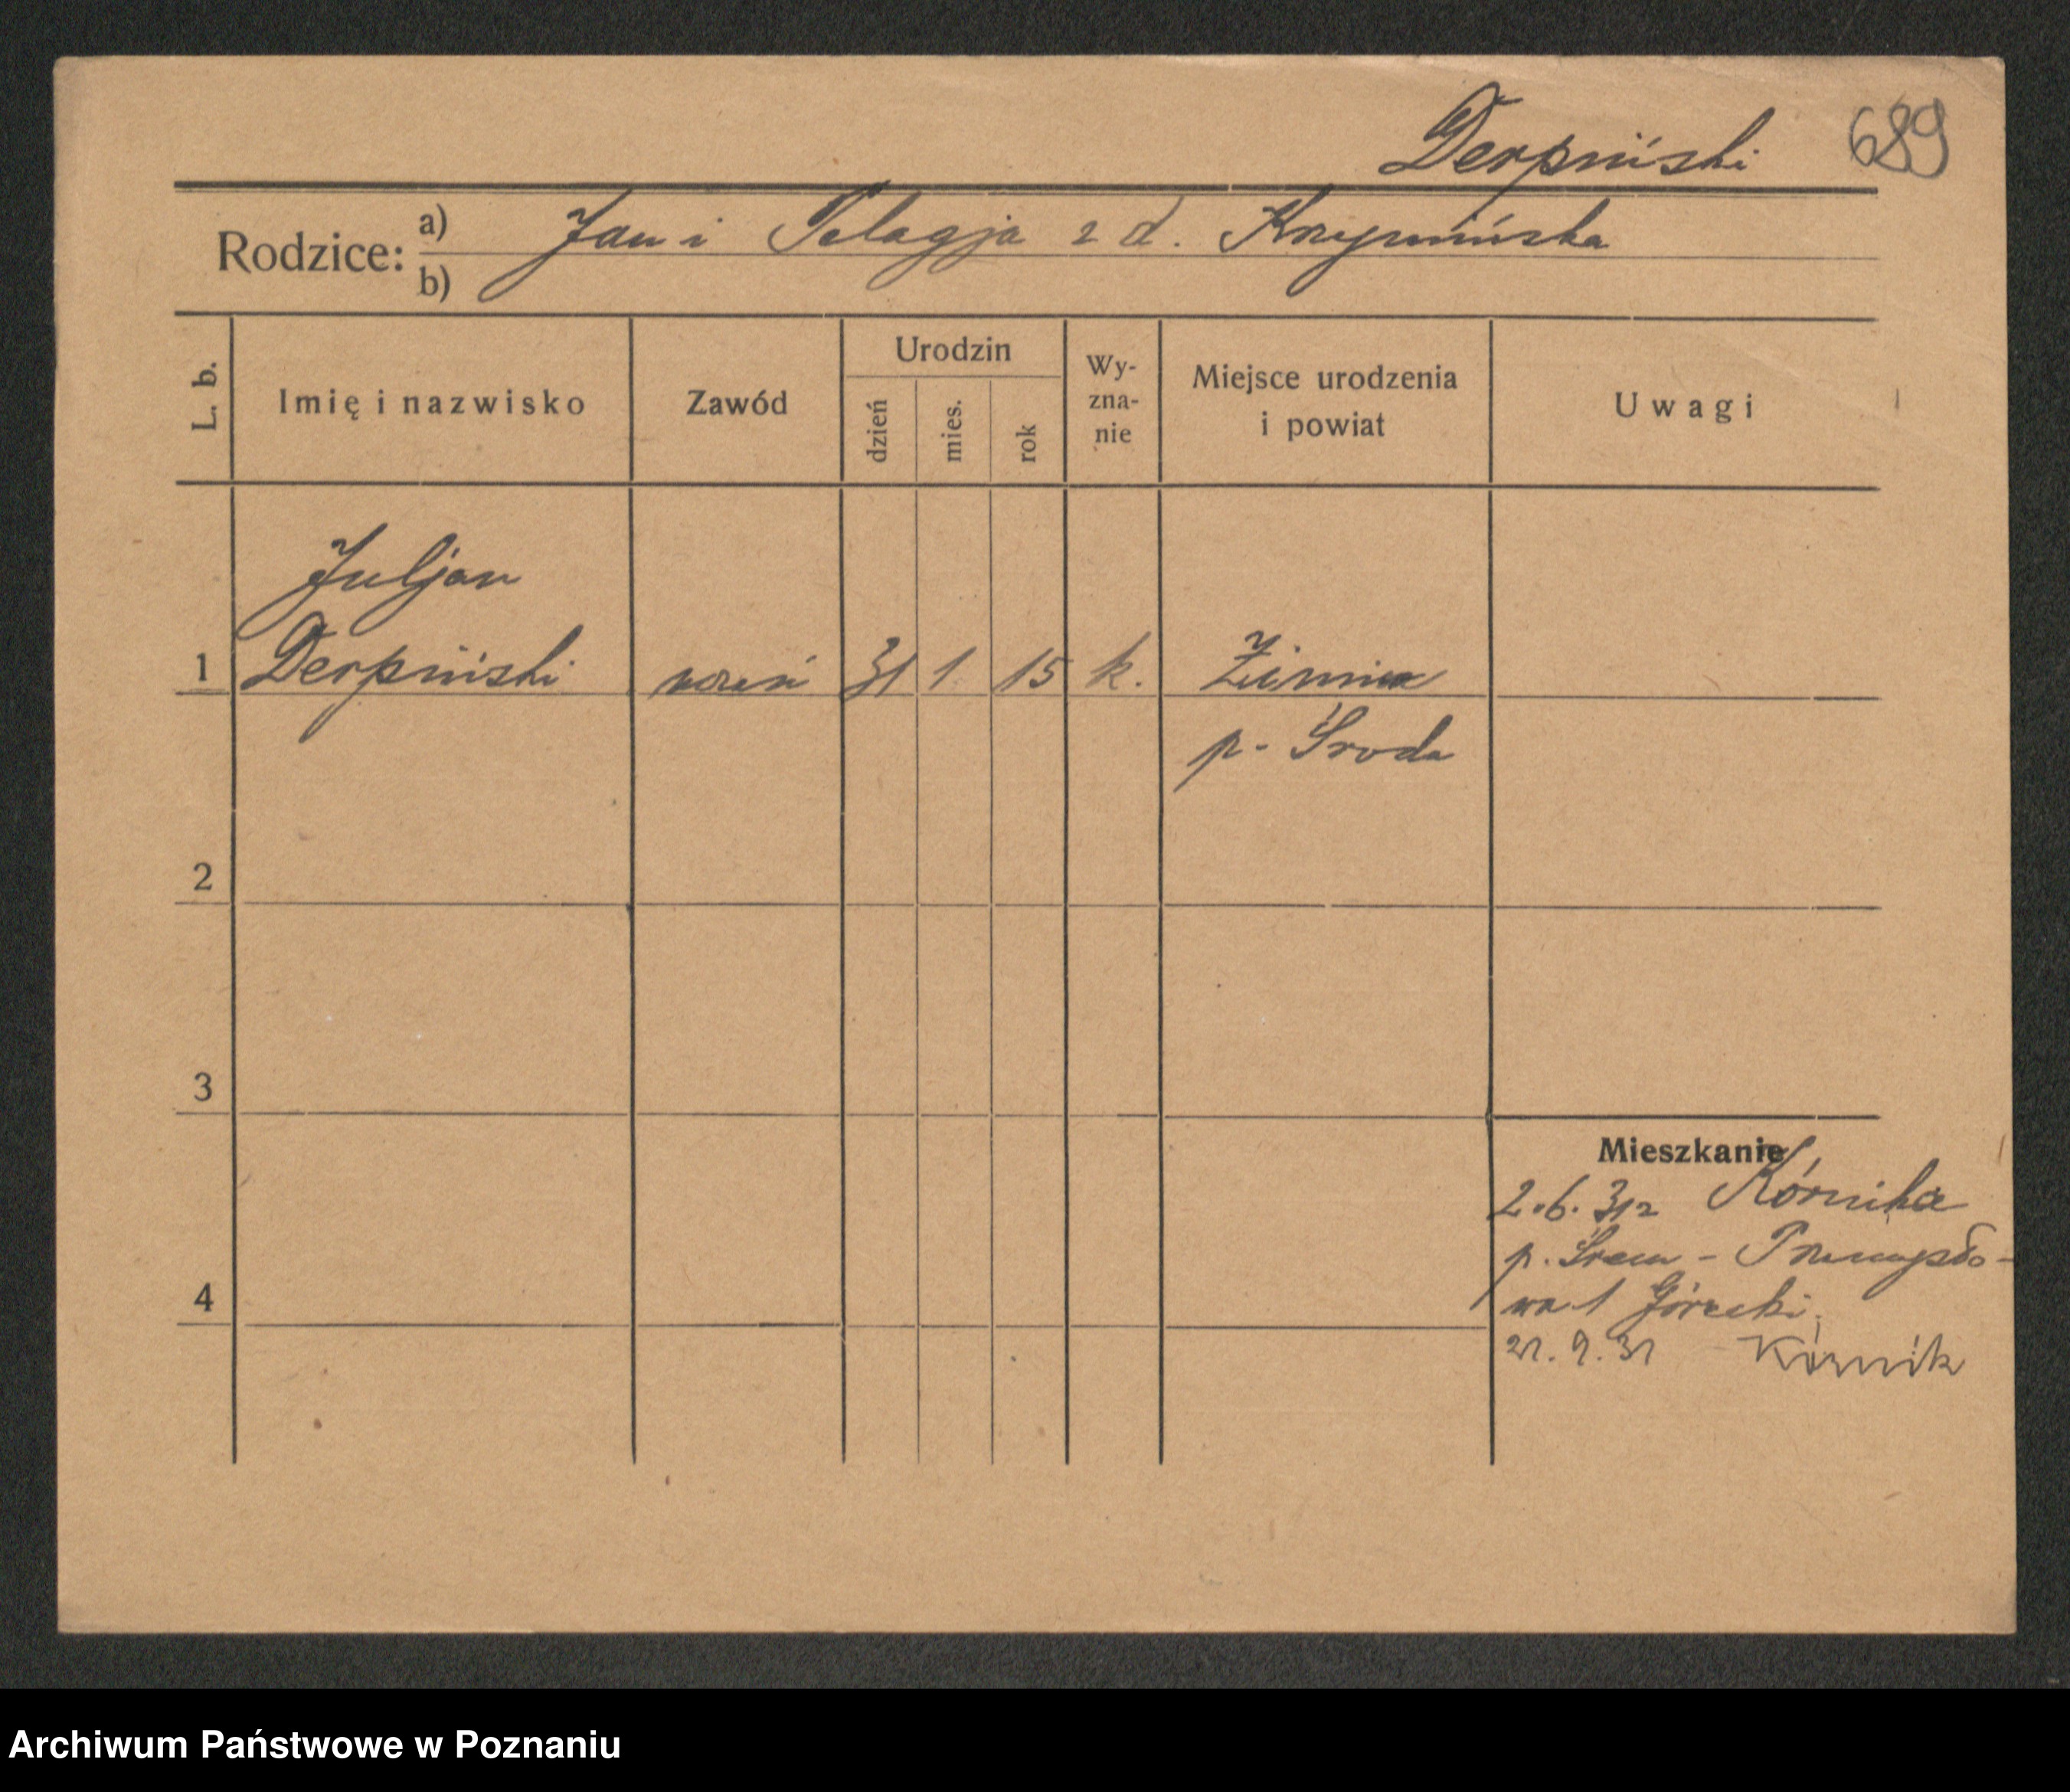 Derpiński 689
Rodzice: a) Jan i Pelagja z d. Krzymińska
b)
L. b. Imię i nazwisko Zawód Urodzin Wy-
zna-
nie Miejsce urodzenia
i powiat Uwagi
dzień mies. rok
Juljan
1 Derpiński uczeń 31 1 15 k.
p. Środa
2
3
Mieszkanie
2.6. Kórnika
p. Śrem - Przemysło-
4 wa 1 Górecki.
21.9.31 Kórnik
Archiwum Państwowe w Poznaniu